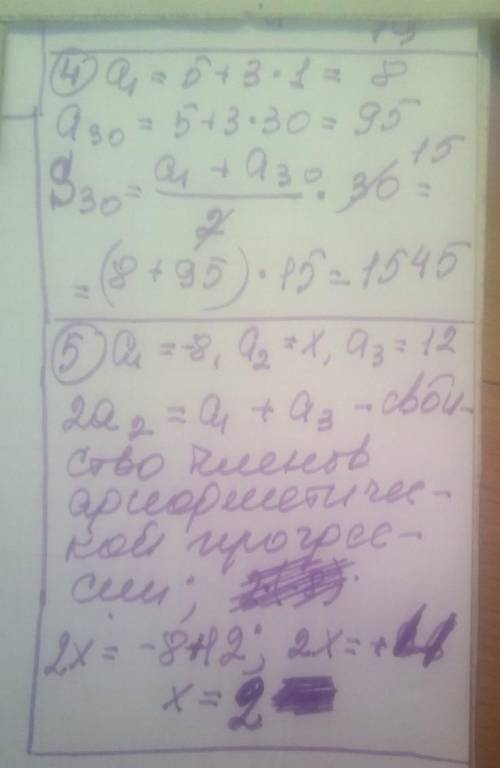 ④ a₁ = 5+3·1 = 8
a₃₀ = 5+3·30 = 95
S₃₀ = (a₁ + a₃₀)/2 · 30 = 15
= (8 + 95)·15 = 1545
⑤ a₁ = -8, a₂ = x, a₃ = 12
2a₂ = a₁ + a₃ - свой-
ство членов
арифметичес-
кой прогрес-
сии;
2x = -8+12; 2x = +
x = 2